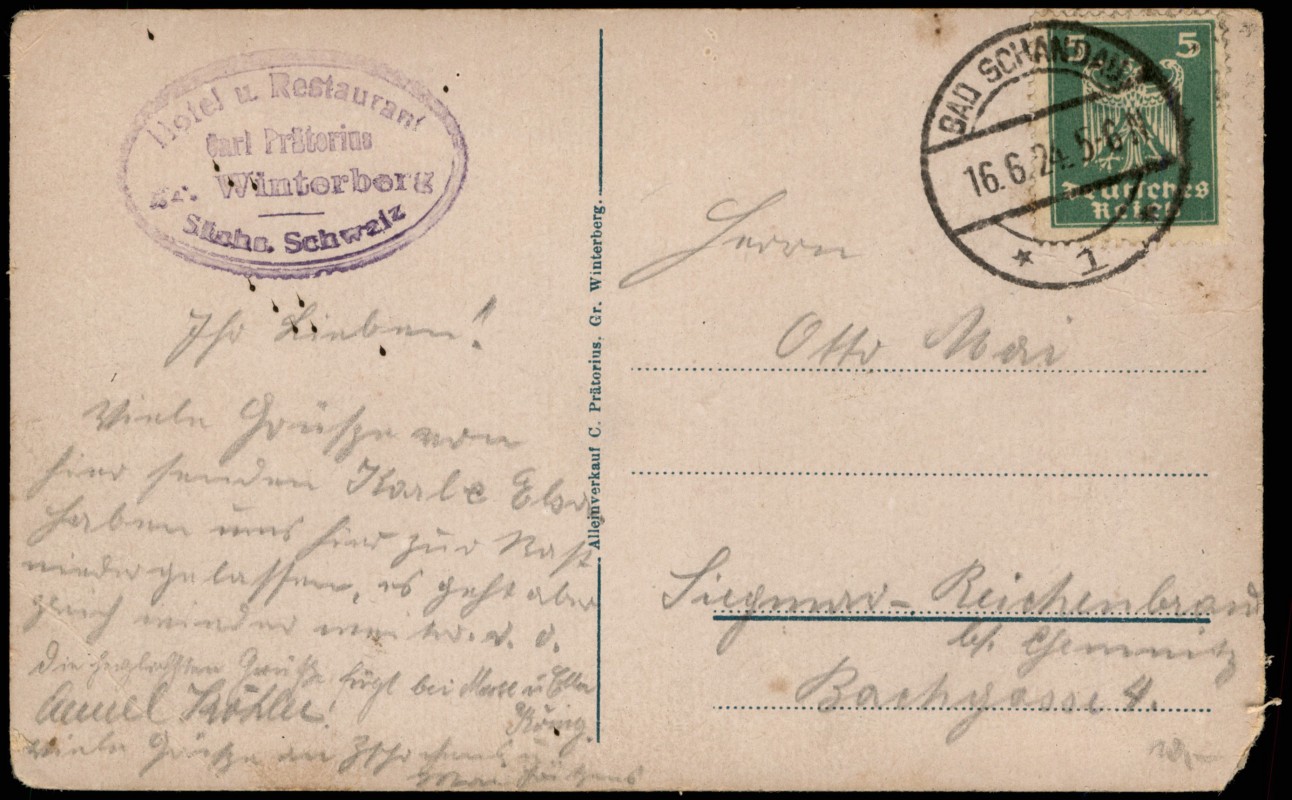 Hotel u. Restaurant
Carl Prätorius
Gr. Winterberg
Sächs. Schweiz
Ihr Lieben!
Viele Grüße von
hier senden Karl & Elsa
haben uns hier zur Rast
niedergelassen, es geht aber
gleich wieder weiter.
Die herzlichsten Grüße fügt bei
Köhler
Viele Grüße an
Alleinverkauf C. Prätorius, Gr. Winterberg.
BAD SCHANDAU
16.6.24. 5-6 N
* 1
5 5
Deutsches
Reich
Herrn
Otto Mai
Siegmar-Reichenbrand
b/ Chemnitz
Bachgasse 4.